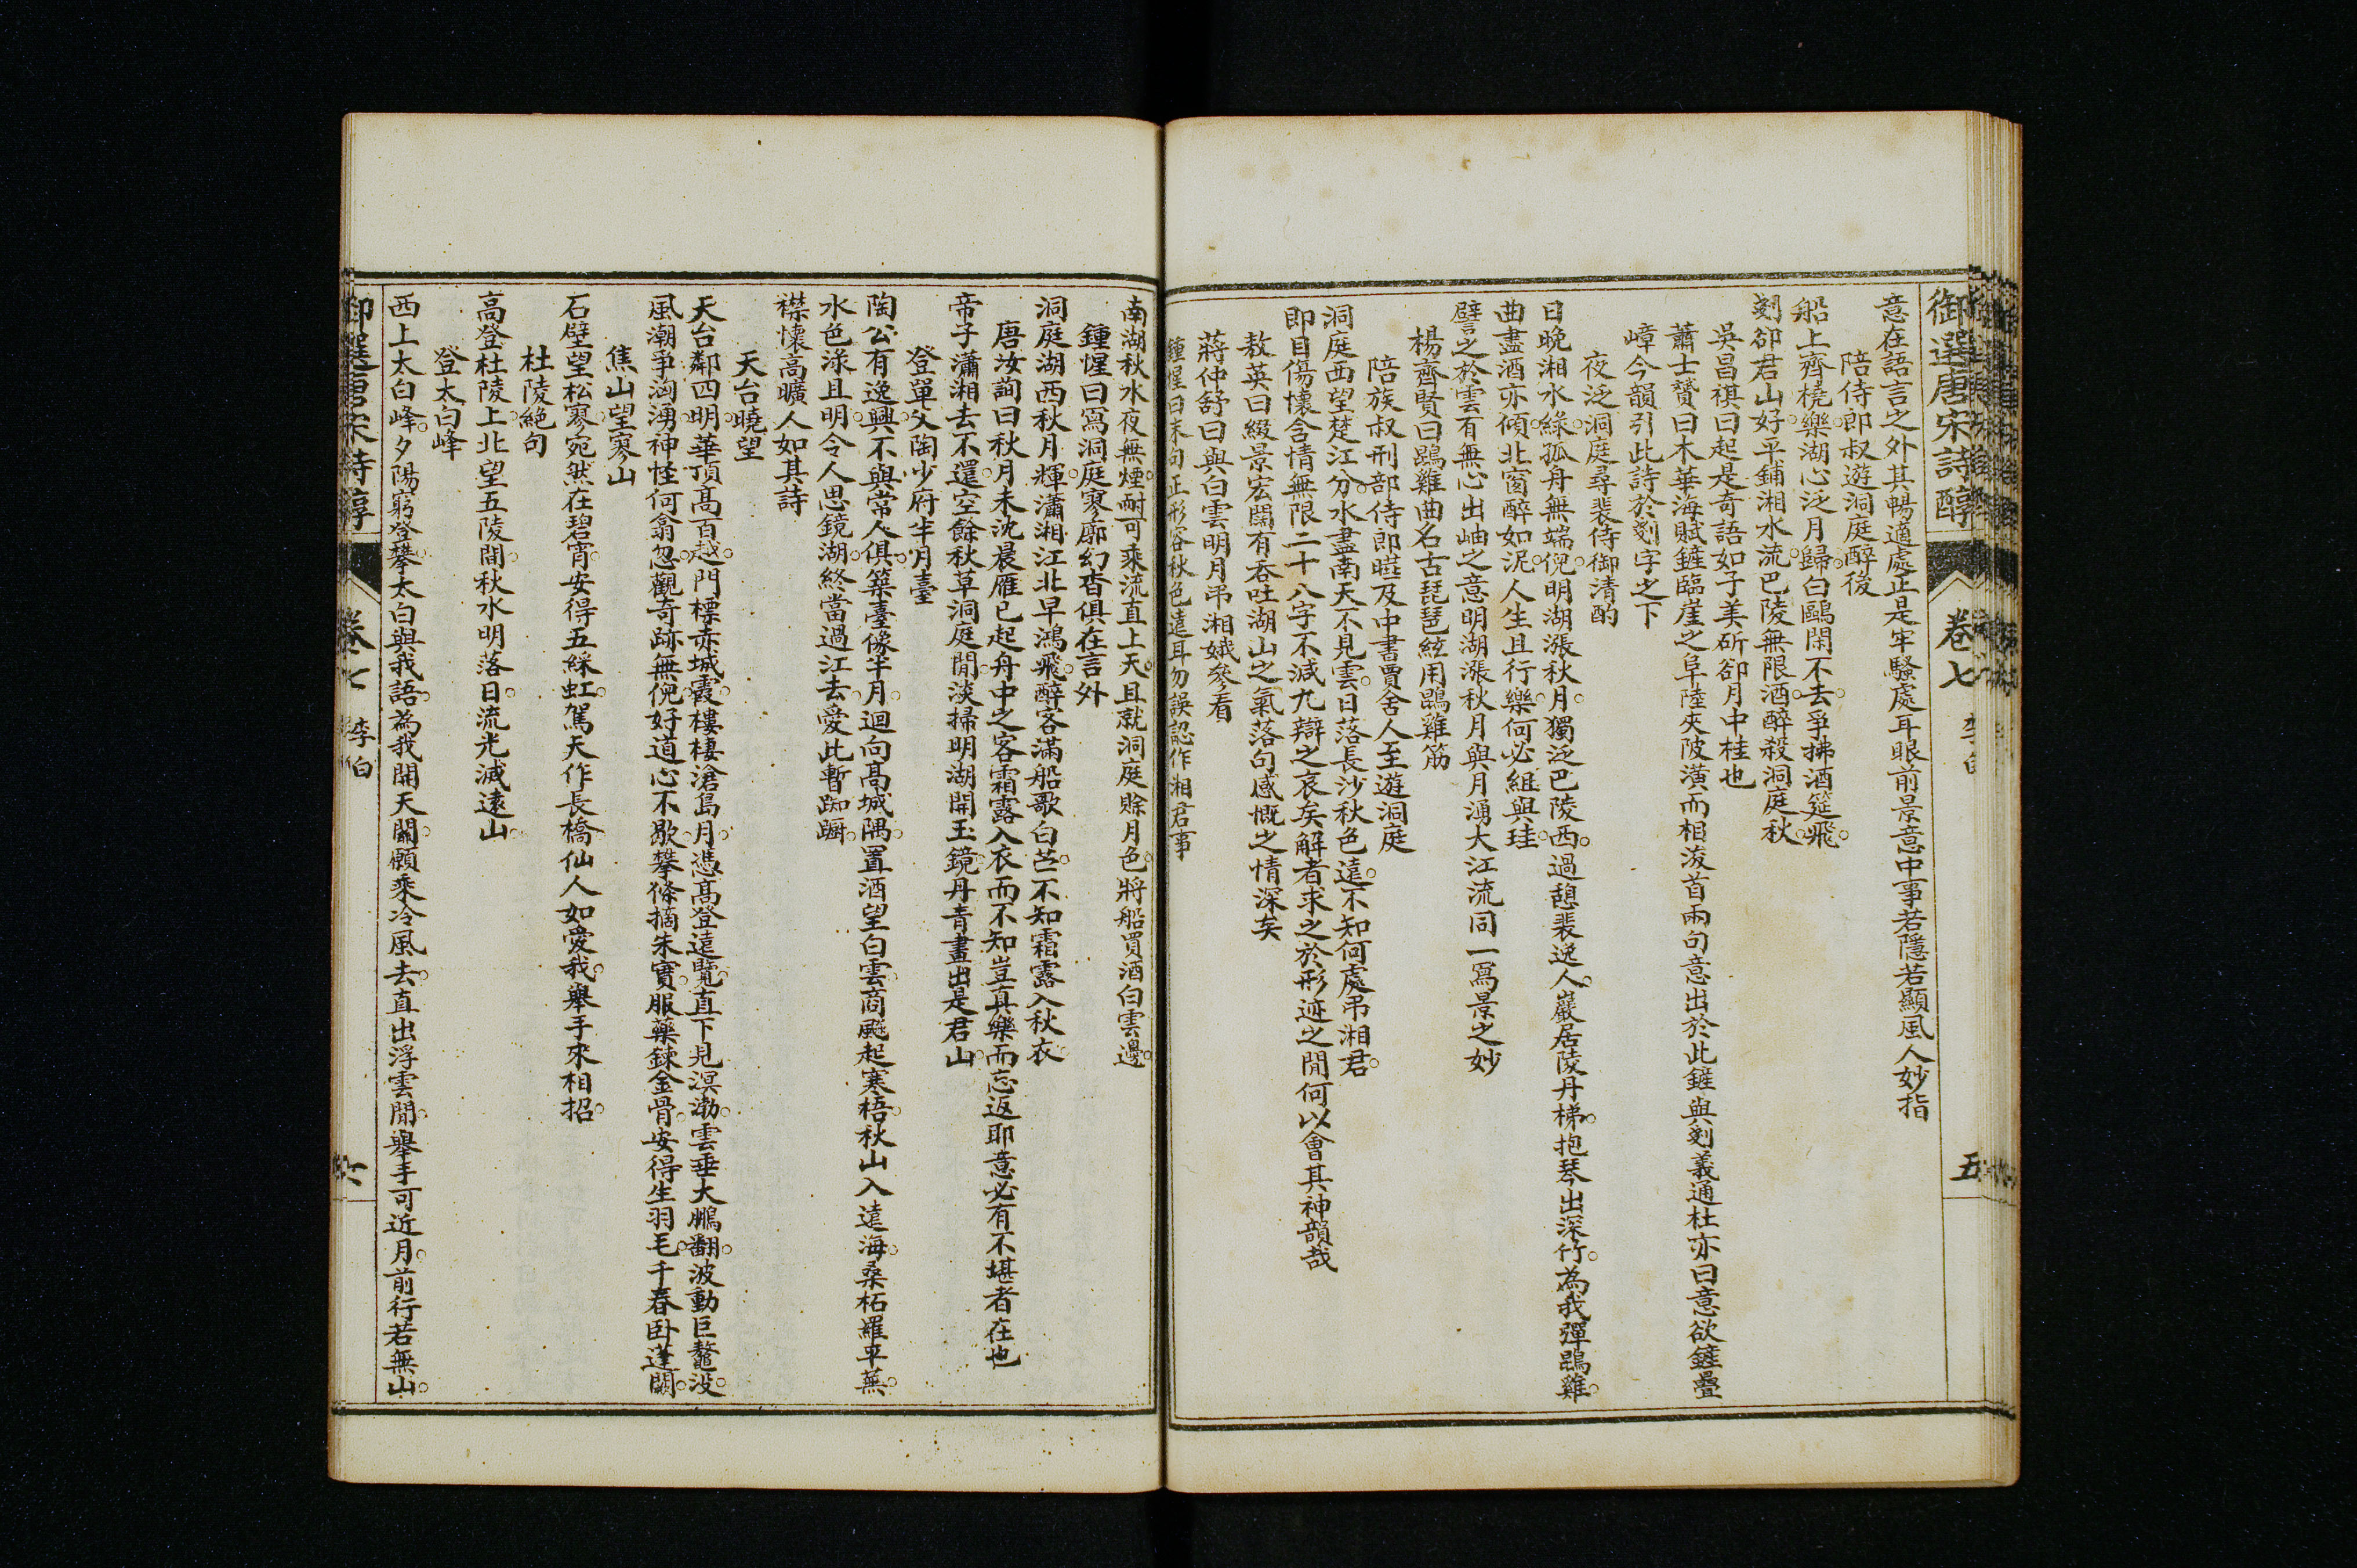 御選唐宋詩醇 卷七 李白 五
意在語言之外其暢適處正是牢騷處耳眼前景意中事若隱若顯風人妙指
陪侍郎叔遊洞庭醉後
船上齊橈樂湖心泛月歸白鷗閑不去爭拂酒筵飛
剗卻君山好平鋪湘水流巴陵無限酒醉殺洞庭秋
吳昌祺曰起是奇語如子美斫卻月中桂也
蕭士贇曰木華海賦鏟臨崖之阜陸夾陂潢而相浚首兩句意出於此鏟與剗義通杜亦曰意欲鏟疊
嶂今韻引此詩於剗字之下
夜泛洞庭尋裴侍御清酌
日晚湘水綠孤舟無端倪明湖漲秋月獨泛巴陵西過憩裴逸人巖居陵丹梯抱琴出深竹為我彈鵾雞
曲盡酒亦傾北窗醉如泥人生且行樂何必組與珪
譬之於雲有無心出岫之意明湖漲秋月與月湧大江流同一寫景之妙
楊齊賢曰鵾雞曲名古琵琶絃用鵾雞筋
陪族叔刑部侍郎曄及中書賈舍人至遊洞庭
洞庭西望楚江分水盡南天不見雲日落長沙秋色遠不知何處弔湘君
即目傷懷含情無限二十八字不減九辯之哀矣解者求之於形迹之間何以會其神韻哉
敖英曰綴景宏闊有吞吐湖山之氣落句感慨之情深矣
蔣仲舒曰與白雲明月弔湘娥參看
鍾惺曰末句正形容秋色遠耳勿誤認作湘君事
南湖秋水夜無煙耐可乘流直上天且就洞庭賒月色將船買酒白雲邊
鍾惺曰寫洞庭寥廓幻杳俱在言外
洞庭湖西秋月輝瀟湘江北早鴻飛醉客滿船歌白苧不知霜露入秋衣
唐汝詢曰秋月未沈晨雁已起舟中之客霜露入衣而不知豈真樂而忘返耶意必有不堪者在也
帝子瀟湘去不還空餘秋草洞庭間淡掃明湖開玉鏡丹青畫出是君山
登單父陶少府半月臺
陶公有逸興不與常人俱築臺像半月迴向高城隅置酒望白雲商飈起寒梧秋山入遠海桑柘羅平蕪
水色淥且明令人思鏡湖終當過江去愛此暫踟躕
襟懷高曠人如其詩
天台曉望
天台鄰四明華頂高百越門標赤城霞樓棲滄島月憑高登遠覽直下見溟渤雲垂大鵬翻波動巨鼇没
風潮爭洶湧神怪何翕忽觀奇跡無倪好道心不歇攀條摘朱實服藥鍊金骨安得生羽毛千春卧蓬闕
焦山望寥山
石壁望松寥宛然在碧霄安得五綵虹駕天作長橋仙人如愛我舉手來相招
杜陵絕句
高登杜陵上北望五陵間秋水明落日流光滅遠山
登太白峰
西上太白峰夕陽窮登攀太白與我語為我開天關願乘冷風去直出浮雲間舉手可近月前行若無山
御選唐宋詩醇 卷七 李白 六